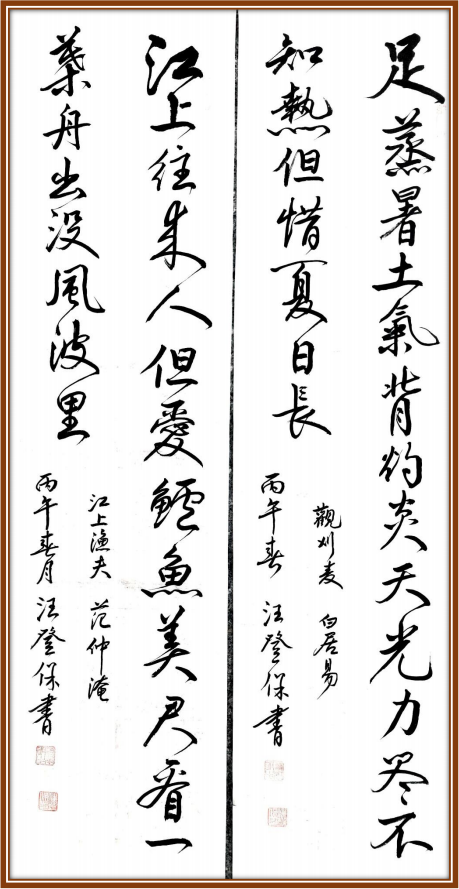 足蒸暑土氣背灼炎天光力尽不
知熱但惜夏日長
觀刈麦 白居易
丙午春 汪登保書
江上往来人但愛鱸魚美君看一
葉舟出没風波里
江上漁夫 范仲淹
丙午春月 汪登保書